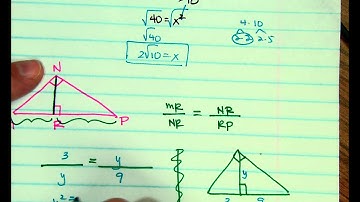 10
√40 = √x²
√40
2√10 = x
4·10
2·2 2·5
N
R P
MR/NR = NR/RP
3/y = y/9
y
9
y² =